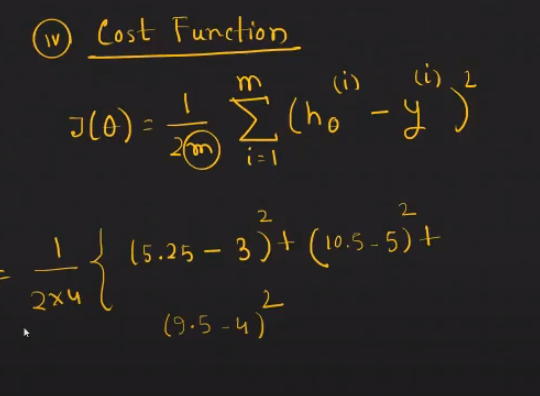 (iv) Cost Function
J(θ) = 1/2m m∑i=1 (hθ^(i) - y^(i))^2
= 1/2×4 { (5.25 - 3)^2 + (10.5 - 5)^2 +
(9.5 - 4)^2